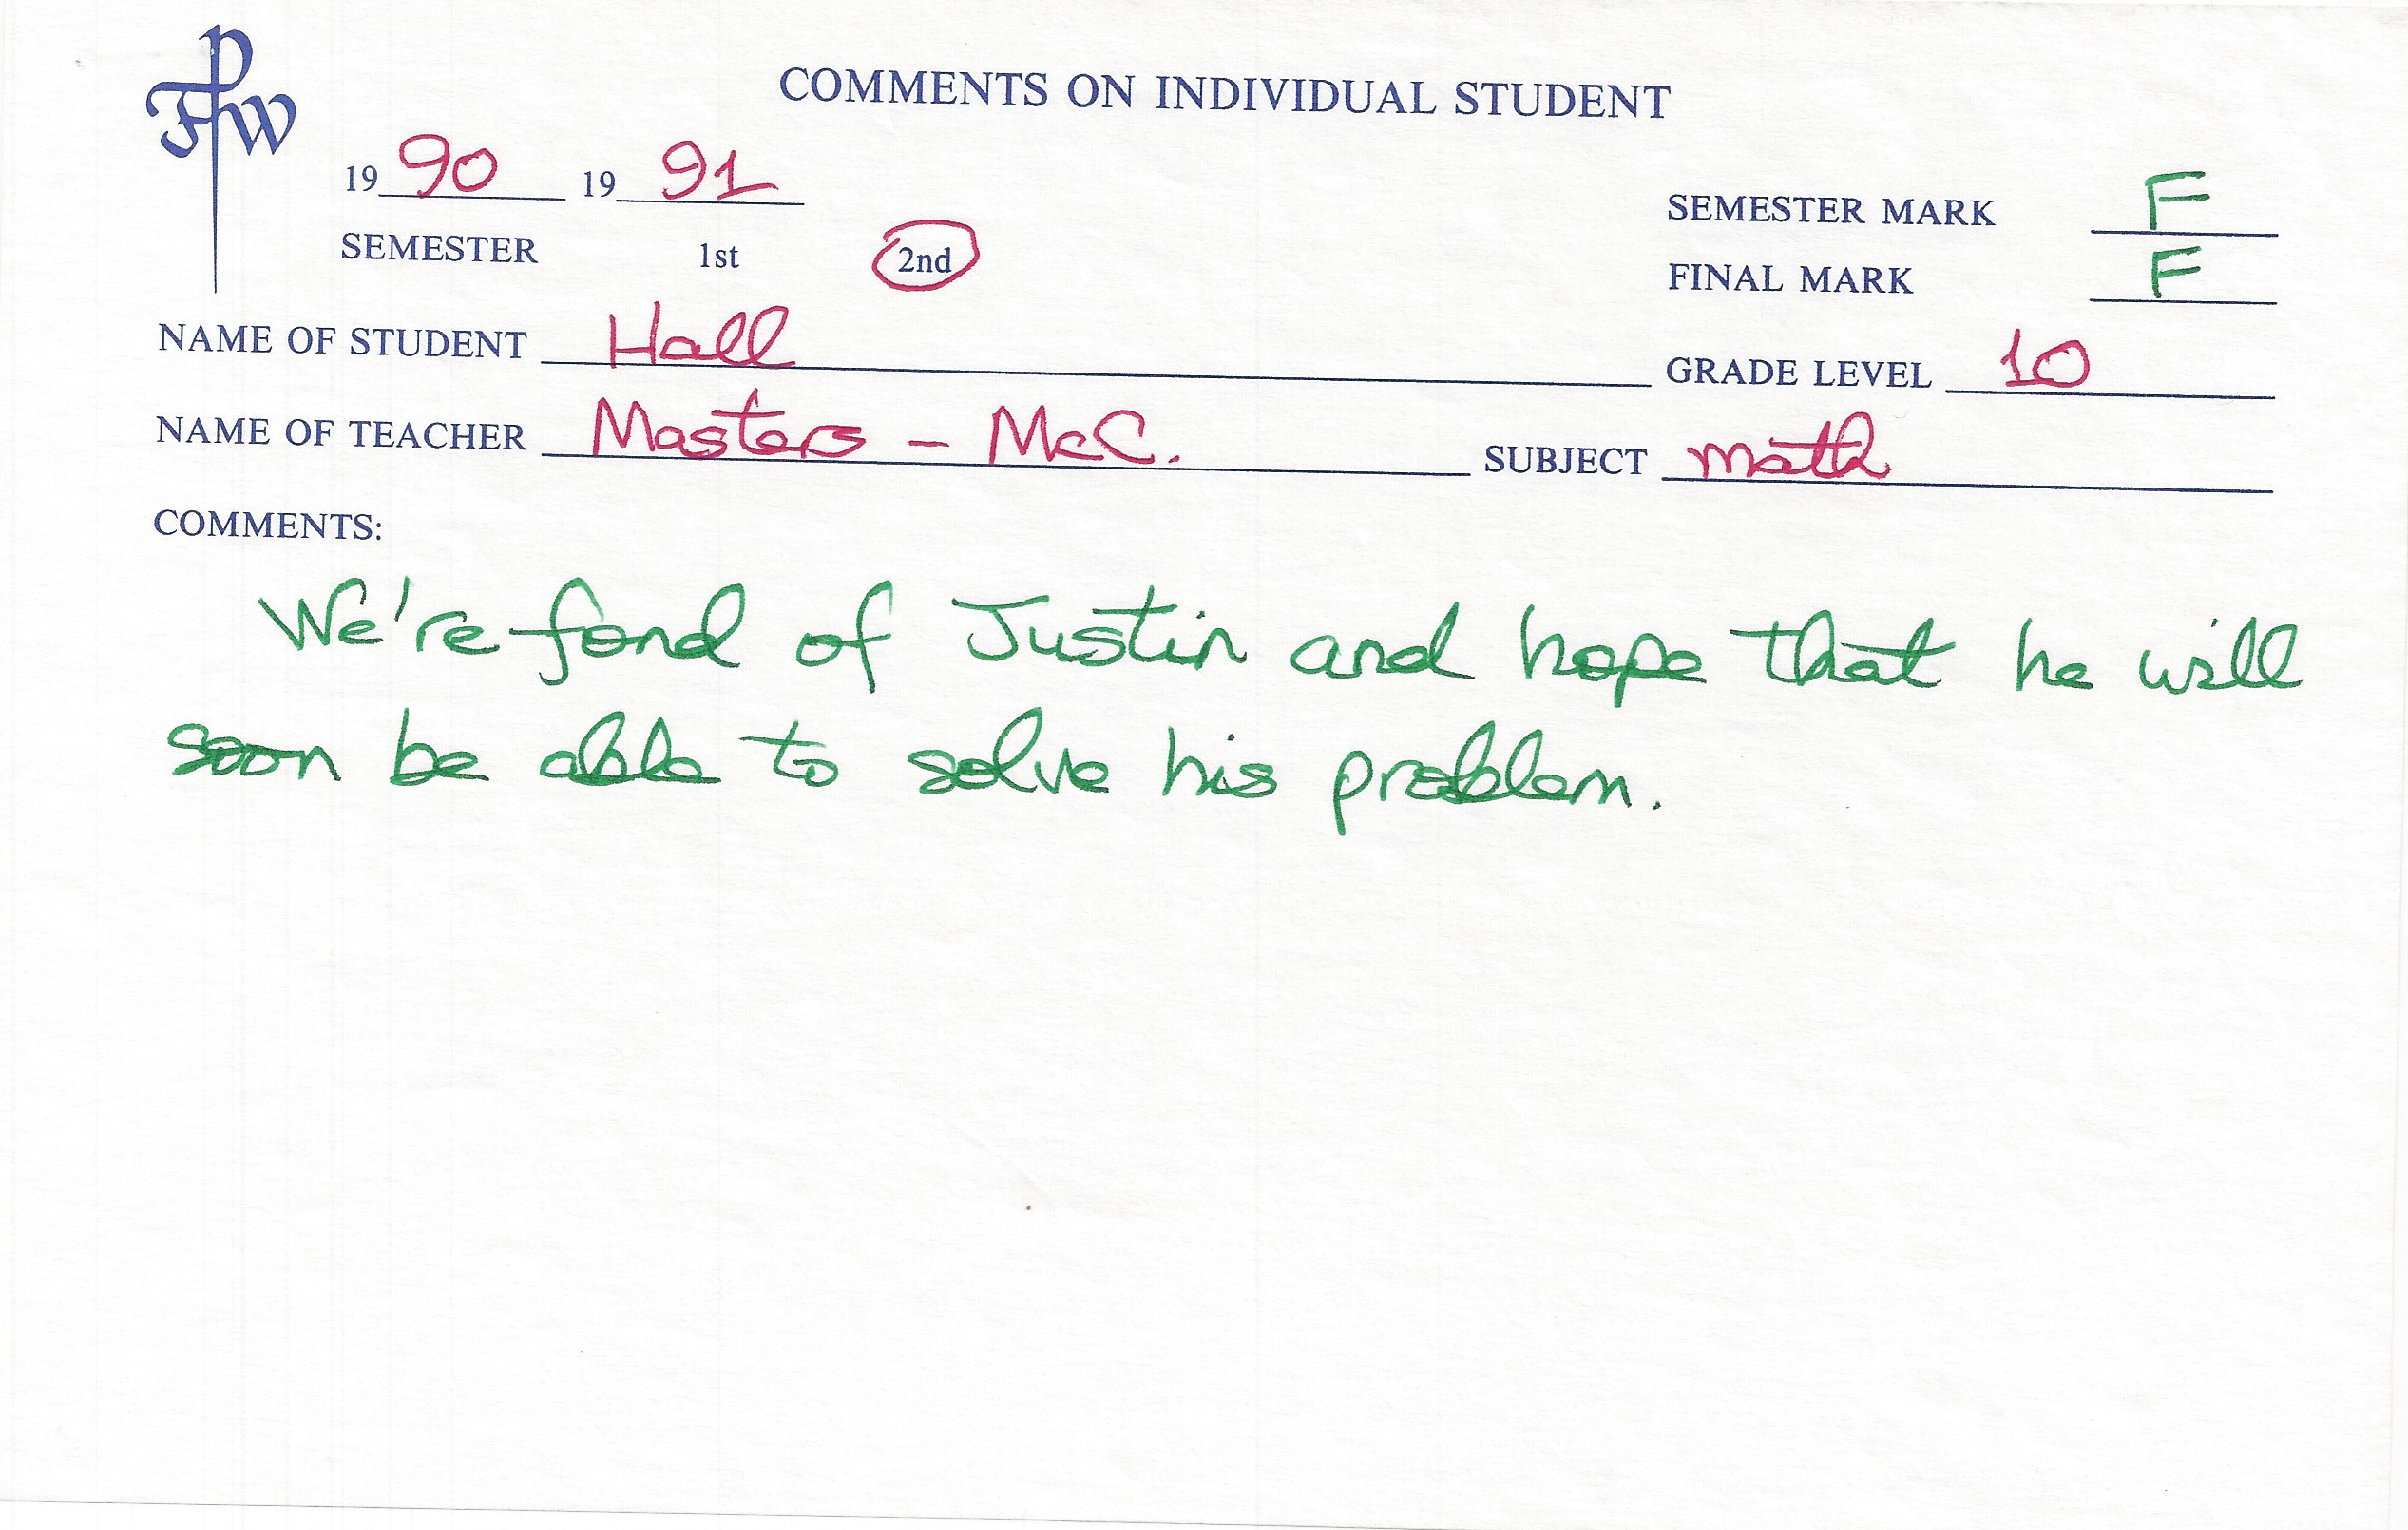 FPW
COMMENTS ON INDIVIDUAL STUDENT
19 90 19 91
SEMESTER 1st 2nd
SEMESTER MARK F
FINAL MARK F
NAME OF STUDENT Hall GRADE LEVEL 10
NAME OF TEACHER Masters - McC. SUBJECT math
COMMENTS:
We're fond of Justin and hope that he will
soon be able to solve his problem.